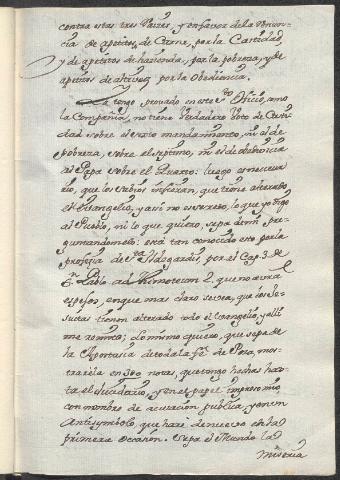 contra estas tres Raizes, y en favor de la Renun-
cia de apetitos de Carne, por la Castidad,
y de apetitos de hazienda, por la pobreza, y de
apetitos de altivez por la Obediencia.
Ya tengo provado en este Oficio, como
la Compañia, no tiene verdadero Voto de Casti-
dad sobre el sexto mandamiento, ni el de
pobreza, sobre el septimo, ni el de obediencia
al Papa sobre el Quarto: luego es necessa-
rio, que los sabios infieran, que tiene alterado
el Evangelio, y assi no es secreto, lo que yo digo
al Pueblo, ni lo que quiero, sepa de mi, pre-
guntandomelo: está tan conocido esto por la
profesia de Sta. Ildegardis, por el Cap. 3. de
S. Pablo ad Thimoteum 2. que no avrá
espejos, en que mas claro se vea, que los Jesu-
suitas tienen alterado todo el Evangelio, y alli
me remito; Lo mismo quiero, que sepa de
la Apostasia de toda la fe, de Poza, mos-
traréla en 300 notas, que tengo hechas has-
ta el Sucedario, y en el papel impreso mio
con nombre de acusacion publica, y en un
Antisymbolo, que haré de nuevo en la
primera ocasion. Sepa el Mundo la
miseria